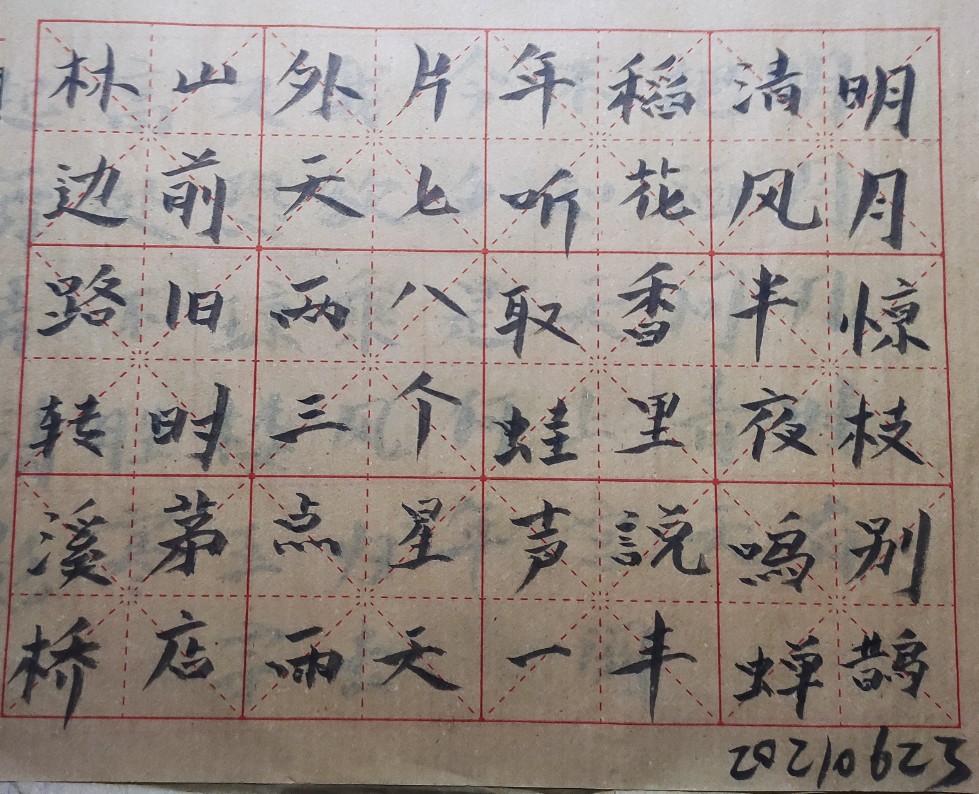 明月惊枝别鹊
清风半夜鸣蝉
稻花香里説丰
年听取蛙声一
片七八个星天
外天两三点雨
山前旧时茅店
林边路转溪桥
20210623